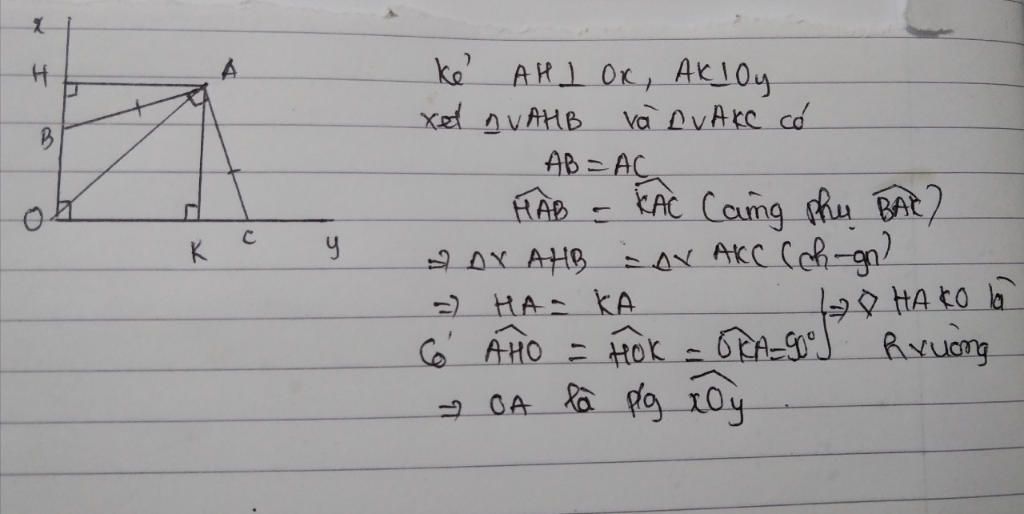 x
H
A
B
O
K
C
y
Kẻ AH ⊥ Ox, AK ⊥ Oy
xét ΔvAHB và ΔvAKC có
AB = AC
HAB = KAC (cùng phụ BAK)
=> Δv AHB = Δv AKC (ch-gn)
=> HA = KA
=> ◇ HAKO là
Có AHO = HOK = OKA = 90°
hvuông
=> OA là p/g xOy